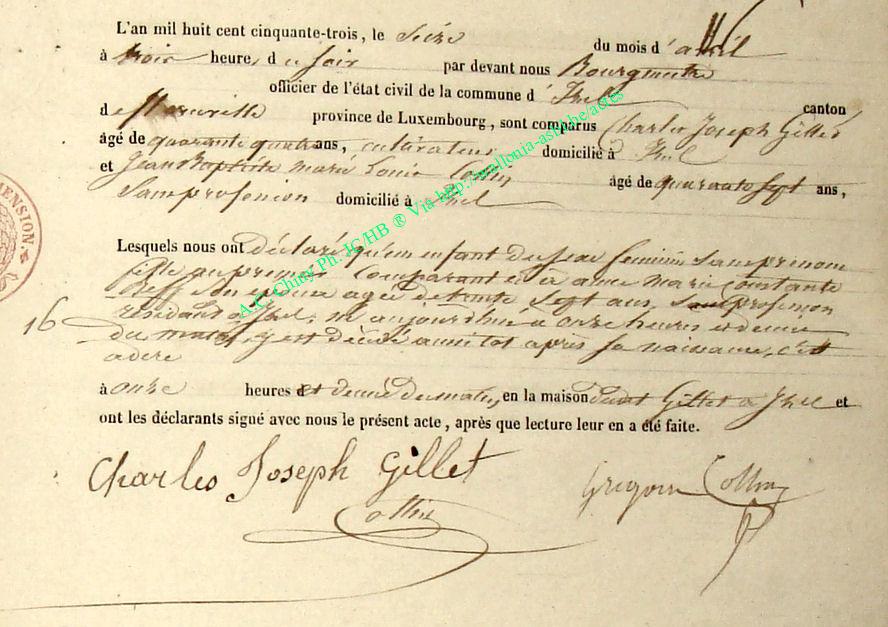 L'an mil huit cent cinquante-trois, le seize du mois d'avril
à trois heure, du soir par devant nous Bourgmestre
officier de l'état civil de la commune d'Izel canton
de province de Luxembourg, sont comparus Charles Joseph Gillet
âgé de quarante quatre ans, cultivateur domicilié à Izel
et Jean Baptiste marie Louis Collin âgé de quarante sept ans,
Sans profession domicilié à Izel
Lesquels nous ont déclaré qu'un enfant du sexe féminin sans prénom
fille au premier Comparant et à marie Constante
son épouse agée de trente sept ans, sans profession
résidant à Izel, né aujourd'hui à onze heures et demie
du matin, y est décédé aussitot après sa naissance, c'est
a dire
à onze heures et demie du matin, en la maison dudit Gillet à Izel et
ont les déclarants signé avec nous le présent acte, après que lecture leur en a été faite.
16
Charles Joseph Gillet
Collin
Gregoire Collin
MENSION.
A.C. Chiny Ph. JC/HB ® Via http://wallonia-asbl.be/actes